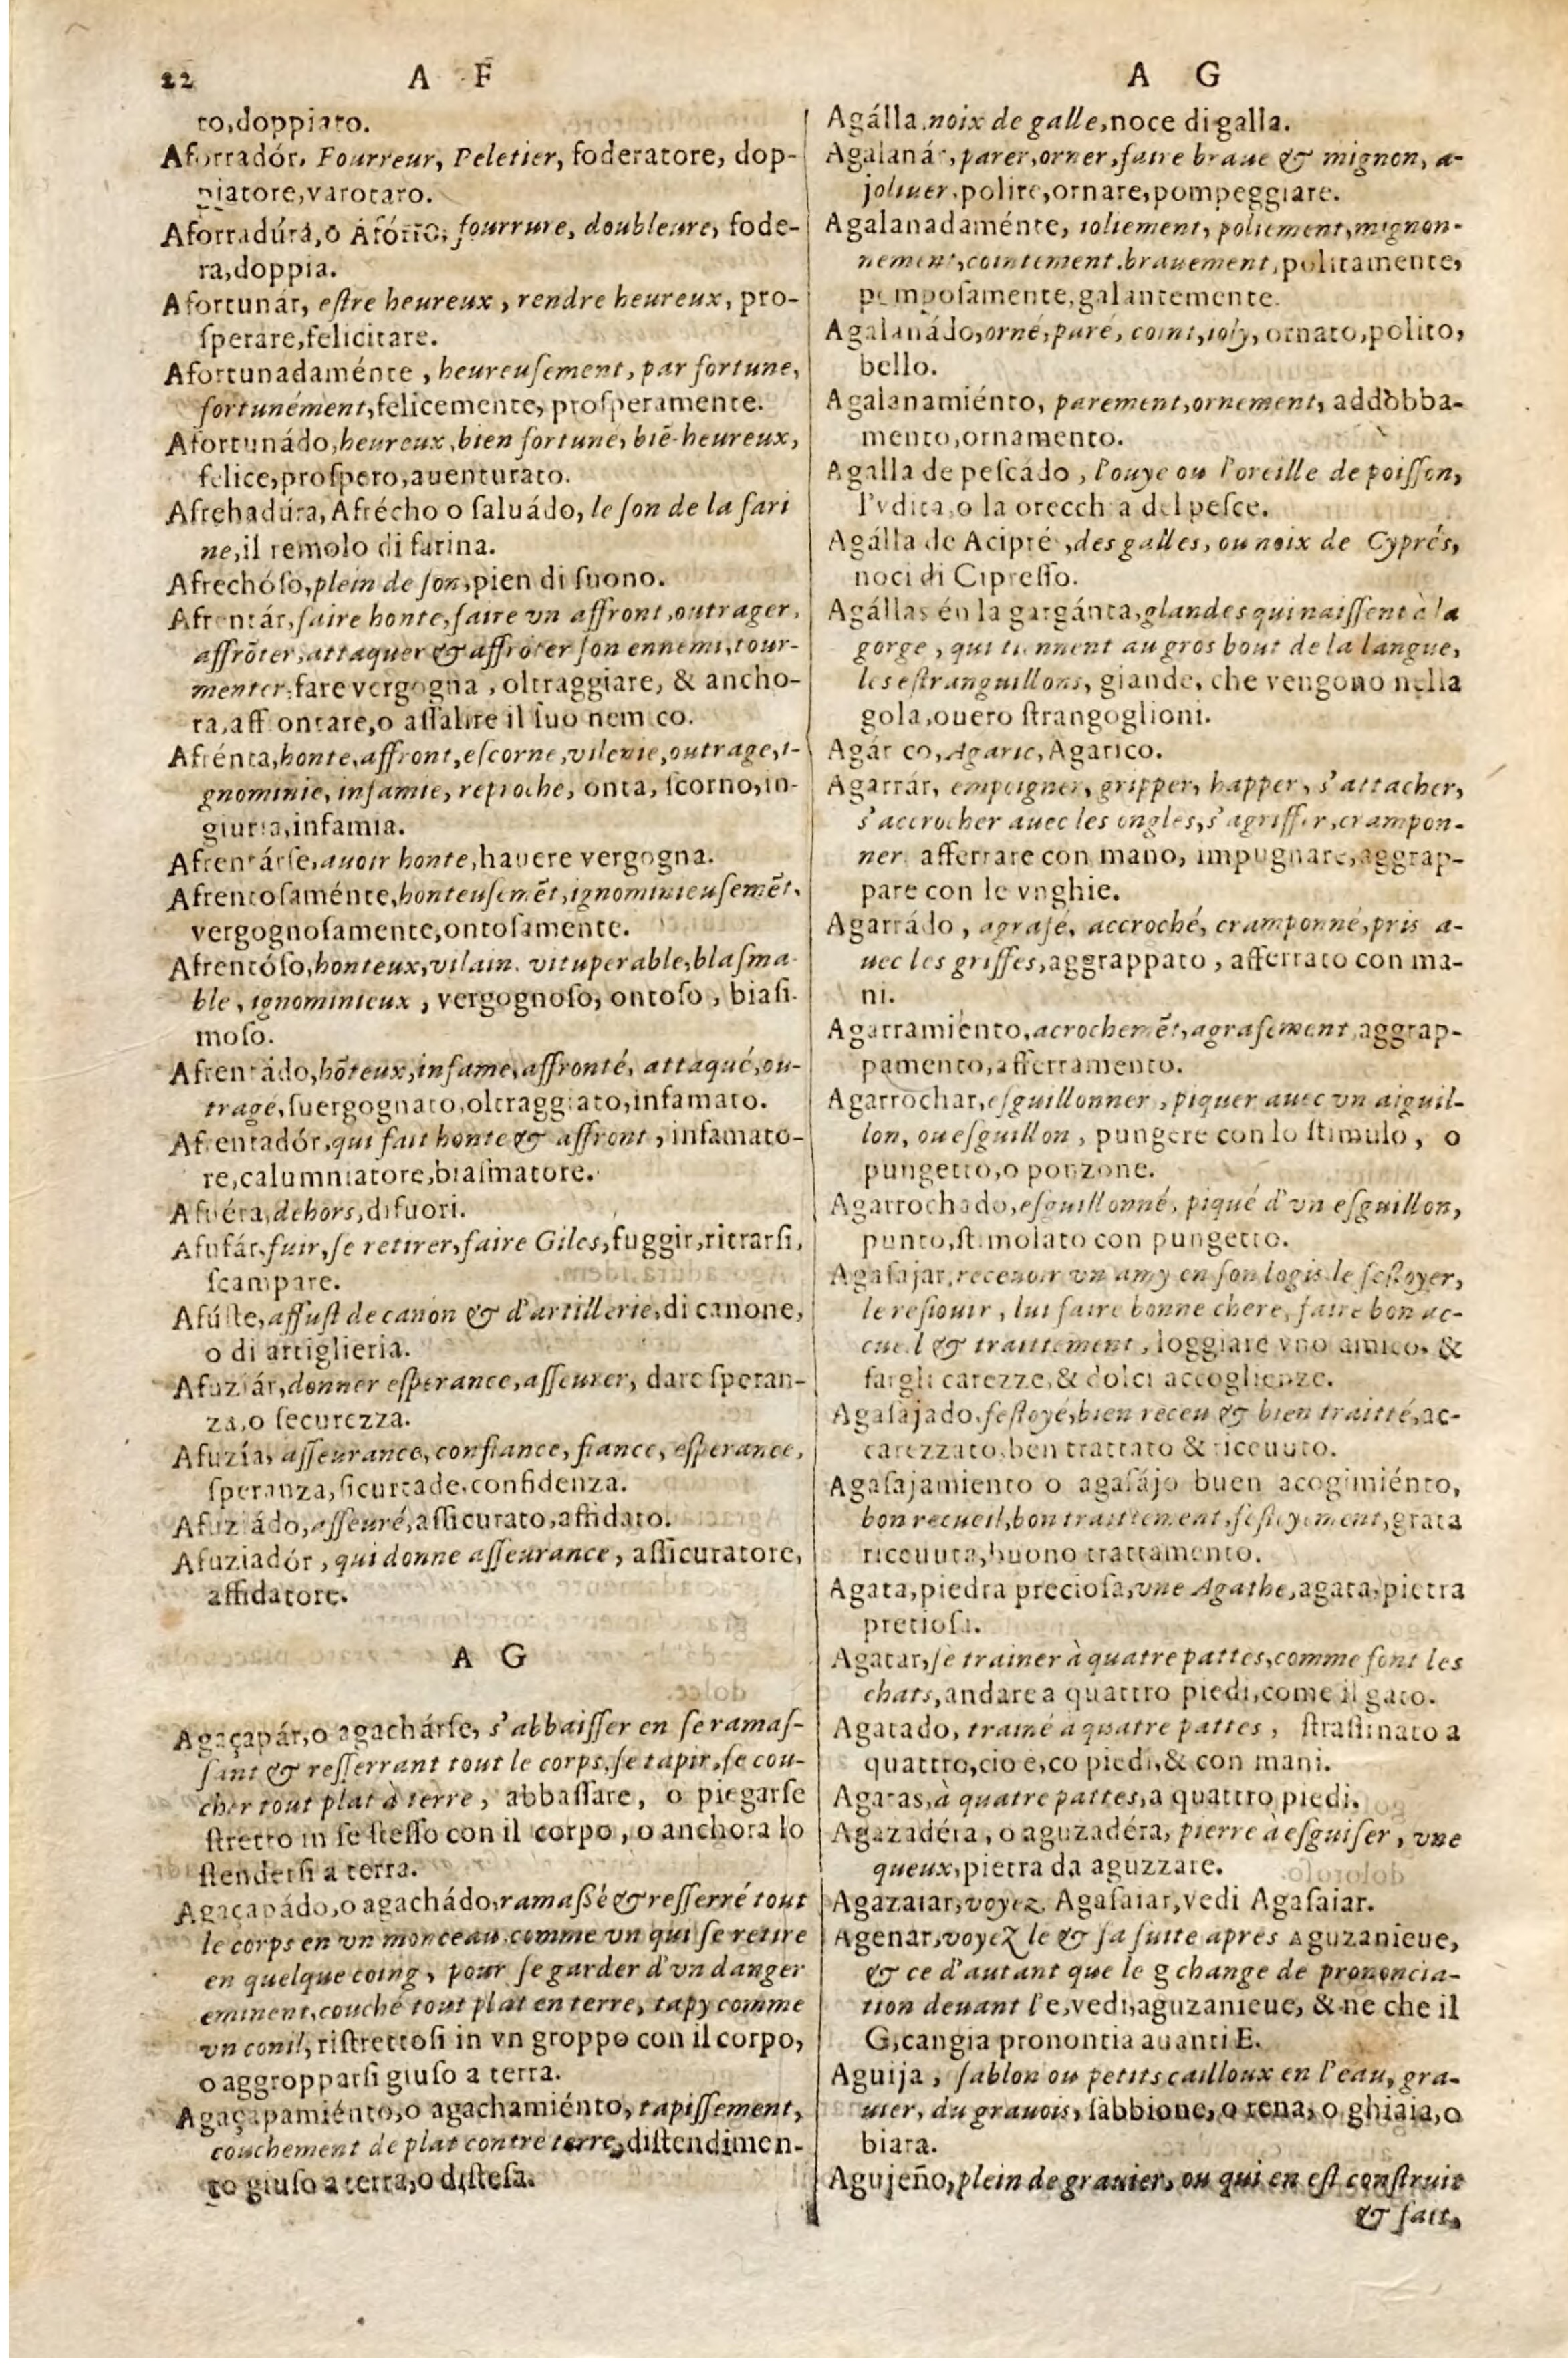 22 A F
to,doppiato.
Aforradór, Fourreur, Peletier, foderatore, dop-
piatore,varotaro.
Aforradúra,o Afórro, fourrure, doubleure, fode-
ra,doppia.
Afortunár, eſtre heureux, rendre heureux, pro-
ſperare,felicitare.
Afortunadaménte, heureuſement, par fortune,
fortunément,felicemente, proſperamente.
Afortunádo,heureux,bien fortuné, biē-heureux,
felice,proſpero,auenturato.
Afrechadúra, Afrécho o ſaluádo, le ſon de la fari
ne,il remolo di farina.
Afrechóſo,plein de ſon,pien di ſuono.
Afrentár,faire honte,faire vn affront,outrager,
affrōter,attaquer & affrōter ſon ennemi,tour-
menter,fare vergogna, oltraggiare, & ancho-
ra,affrontare,o aſſalire il ſuo nemico.
Afrénta,honte,affront,eſcorne,vilenie,outrage,i-
gnominie, infamie, reproche, onta, ſcorno,in-
giuria,infamia.
Afrentárſe,auoir honte,hauere vergogna.
Afrentoſaménte,honteuſemēt,ignominieuſemēt,
vergognoſamente,ontoſamente.
Afrentóſo,honteux,vilain, vituperable,blaſma-
ble, ignominieux, vergognoſo, ontoſo, biaſi-
moſo.
Afrentádo,hōteux,infame,affronté, attaqué,ou-
tragé,ſuergognato,oltraggiato,infamato.
Afrentadór,qui fait honte & affront, infamato-
re,calumniatore,biaſmatore.
Afuéra,dehors,difuori.
Afufár,fuir,ſe retirer,faire Giles,fuggir,ritrarſi,
ſcampare.
Afúſte,affuſt de canon & d'artillerie,di canone,
o di artiglieria.
Afuziár,donner eſperance,aſſeurer, dare ſperan-
za,o ſecurezza.
Afuzía, aſſeurance, confiance, fiance, eſperance,
ſperanza,ſicurtade,confidenza.
Afuziádo,aſſeuré,aſſicurato,affidato.
Afuziadór, qui donne aſſeurance, aſſicuratore,
affidatore.
A G
Agaçapár,o agachárſe, s'abbaiſſer en ſe ramaſ-
ſant & reſſerrant tout le corps,ſe tapir,ſe cou-
cher tout plat à terre, abbaſſare, o piegarſe
ſtretto in ſe ſteſſo con il corpo, o anchora lo
ſtenderſi a terra.
Agaçapádo,o agachádo,ramaſſé & reſſerré tout
le corps en vn monceau,comme vn qui ſe retire
en quelque coing, pour ſe garder d'vn danger
eminent,couché tout plat en terre, tapy comme
vn conil, riſtrettoſi in vn groppo con il corpo,
o aggropparſi giuſo a terra.
Agaçapamiénto,o agachamiénto, tapiſſement,
couchement de plat contre terre,diſtendimen-
to giuſo a terra,o diſteſa.
A G
Agálla,noix de galle,noce di galla.
Agalanár,parer,orner,faire braue & mignon, a-
joliuer,polire,ornare,pompeggiare.
Agalanadaménte, ioliement, poliement,mignon-
nement,cointement,brauement,politamente,
pompoſamente,galantemente.
Agalanádo,orné,paré, coint,ioly, ornato,polito,
bello.
Agalanamiénto, parement,ornement, addobba-
mento,ornamento.
Agalla de peſcádo, l'ouye ou l'oreille de poiſſon,
l'vdita,o la orecchia del peſce.
Agálla de Acipré,des galles, ou noix de Cyprés,
noci di Cipreſſo.
Agállas én la gargánta,glandes qui naiſſent à la
gorge, qui tiennent au gros bout de la langue,
les eſtranguillons, giande, che vengono nella
gola,ouero ſtrangoglioni.
Agárico, Agaric, Agarico.
Agarrár, empoigner, gripper, happer, s'attacher,
s'accrocher auec les ongles,s'agriffer,crampon-
ner, afferrare con mano, impugnare,aggrap-
pare con le vnghie.
Agarrádo, agrafé, accroché, cramponné,pris a-
uec les griffes,aggrappato, afferrato con ma-
ni.
Agarramiento,acrochemēt,agrafement,aggrap-
pamento,afferramento.
Agarrochar,eſguillonner, piquer auec vn aiguil-
lon, ou eſguillon, pungere con lo ſtimulo, o
pungetto,o ponzone.
Agarrochado,eſguillonné, piqué d'vn eſguillon,
punto,ſtimolato con pungetto.
Agaſajar,receuoir vn amy en ſon logis,le feſtoyer,
le reſiouir, lui faire bonne chere, faire bon ac-
cueil & traittement, loggiare vno amico, &
fargli carezze,& dolci accoglienze.
Agaſajado,feſtoyé,bien receu & bien traitté,ac-
carezzato,ben trattato & riceuuto.
Agaſajamiento o agaſájo buen acogimiénto,
bon recueil,bon traittement,feſtoyement,grata
riceuuta,buono trattamento.
Agata,piedra precioſa,vne Agathe,agata,pietra
pretioſa.
Agatar,ſe trainer à quatre pattes,comme font les
chats,andare a quattro piedi,come il gato.
Agatado, trainé a quatre pattes, ſtraſſinato a
quattro,cio e,co piedi,& con mani.
Agatas,à quatre pattes,a quattro piedi.
Agazadéra, o aguzadéra, pierre à eſguiſer, vne
queux,pietra da aguzzare.
Agazaiar,voyez Agaſaiar,vedi Agaſaiar.
Agenar,voyez le & ſa ſuite apres Aguzanieue,
& ce d'autant que le g change de prononcia-
tion deuant l'e,vedi,aguzanieue, & ne che il
G,cangia pronontia auanti E.
Aguija, ſablon ou petits cailloux en l'eau, gra-
uier, du grauois, ſabbione, o rena, o ghiaia,o
biara.
Agujeño,plein de grauier, ou qui en eſt conſtruit
& fait,